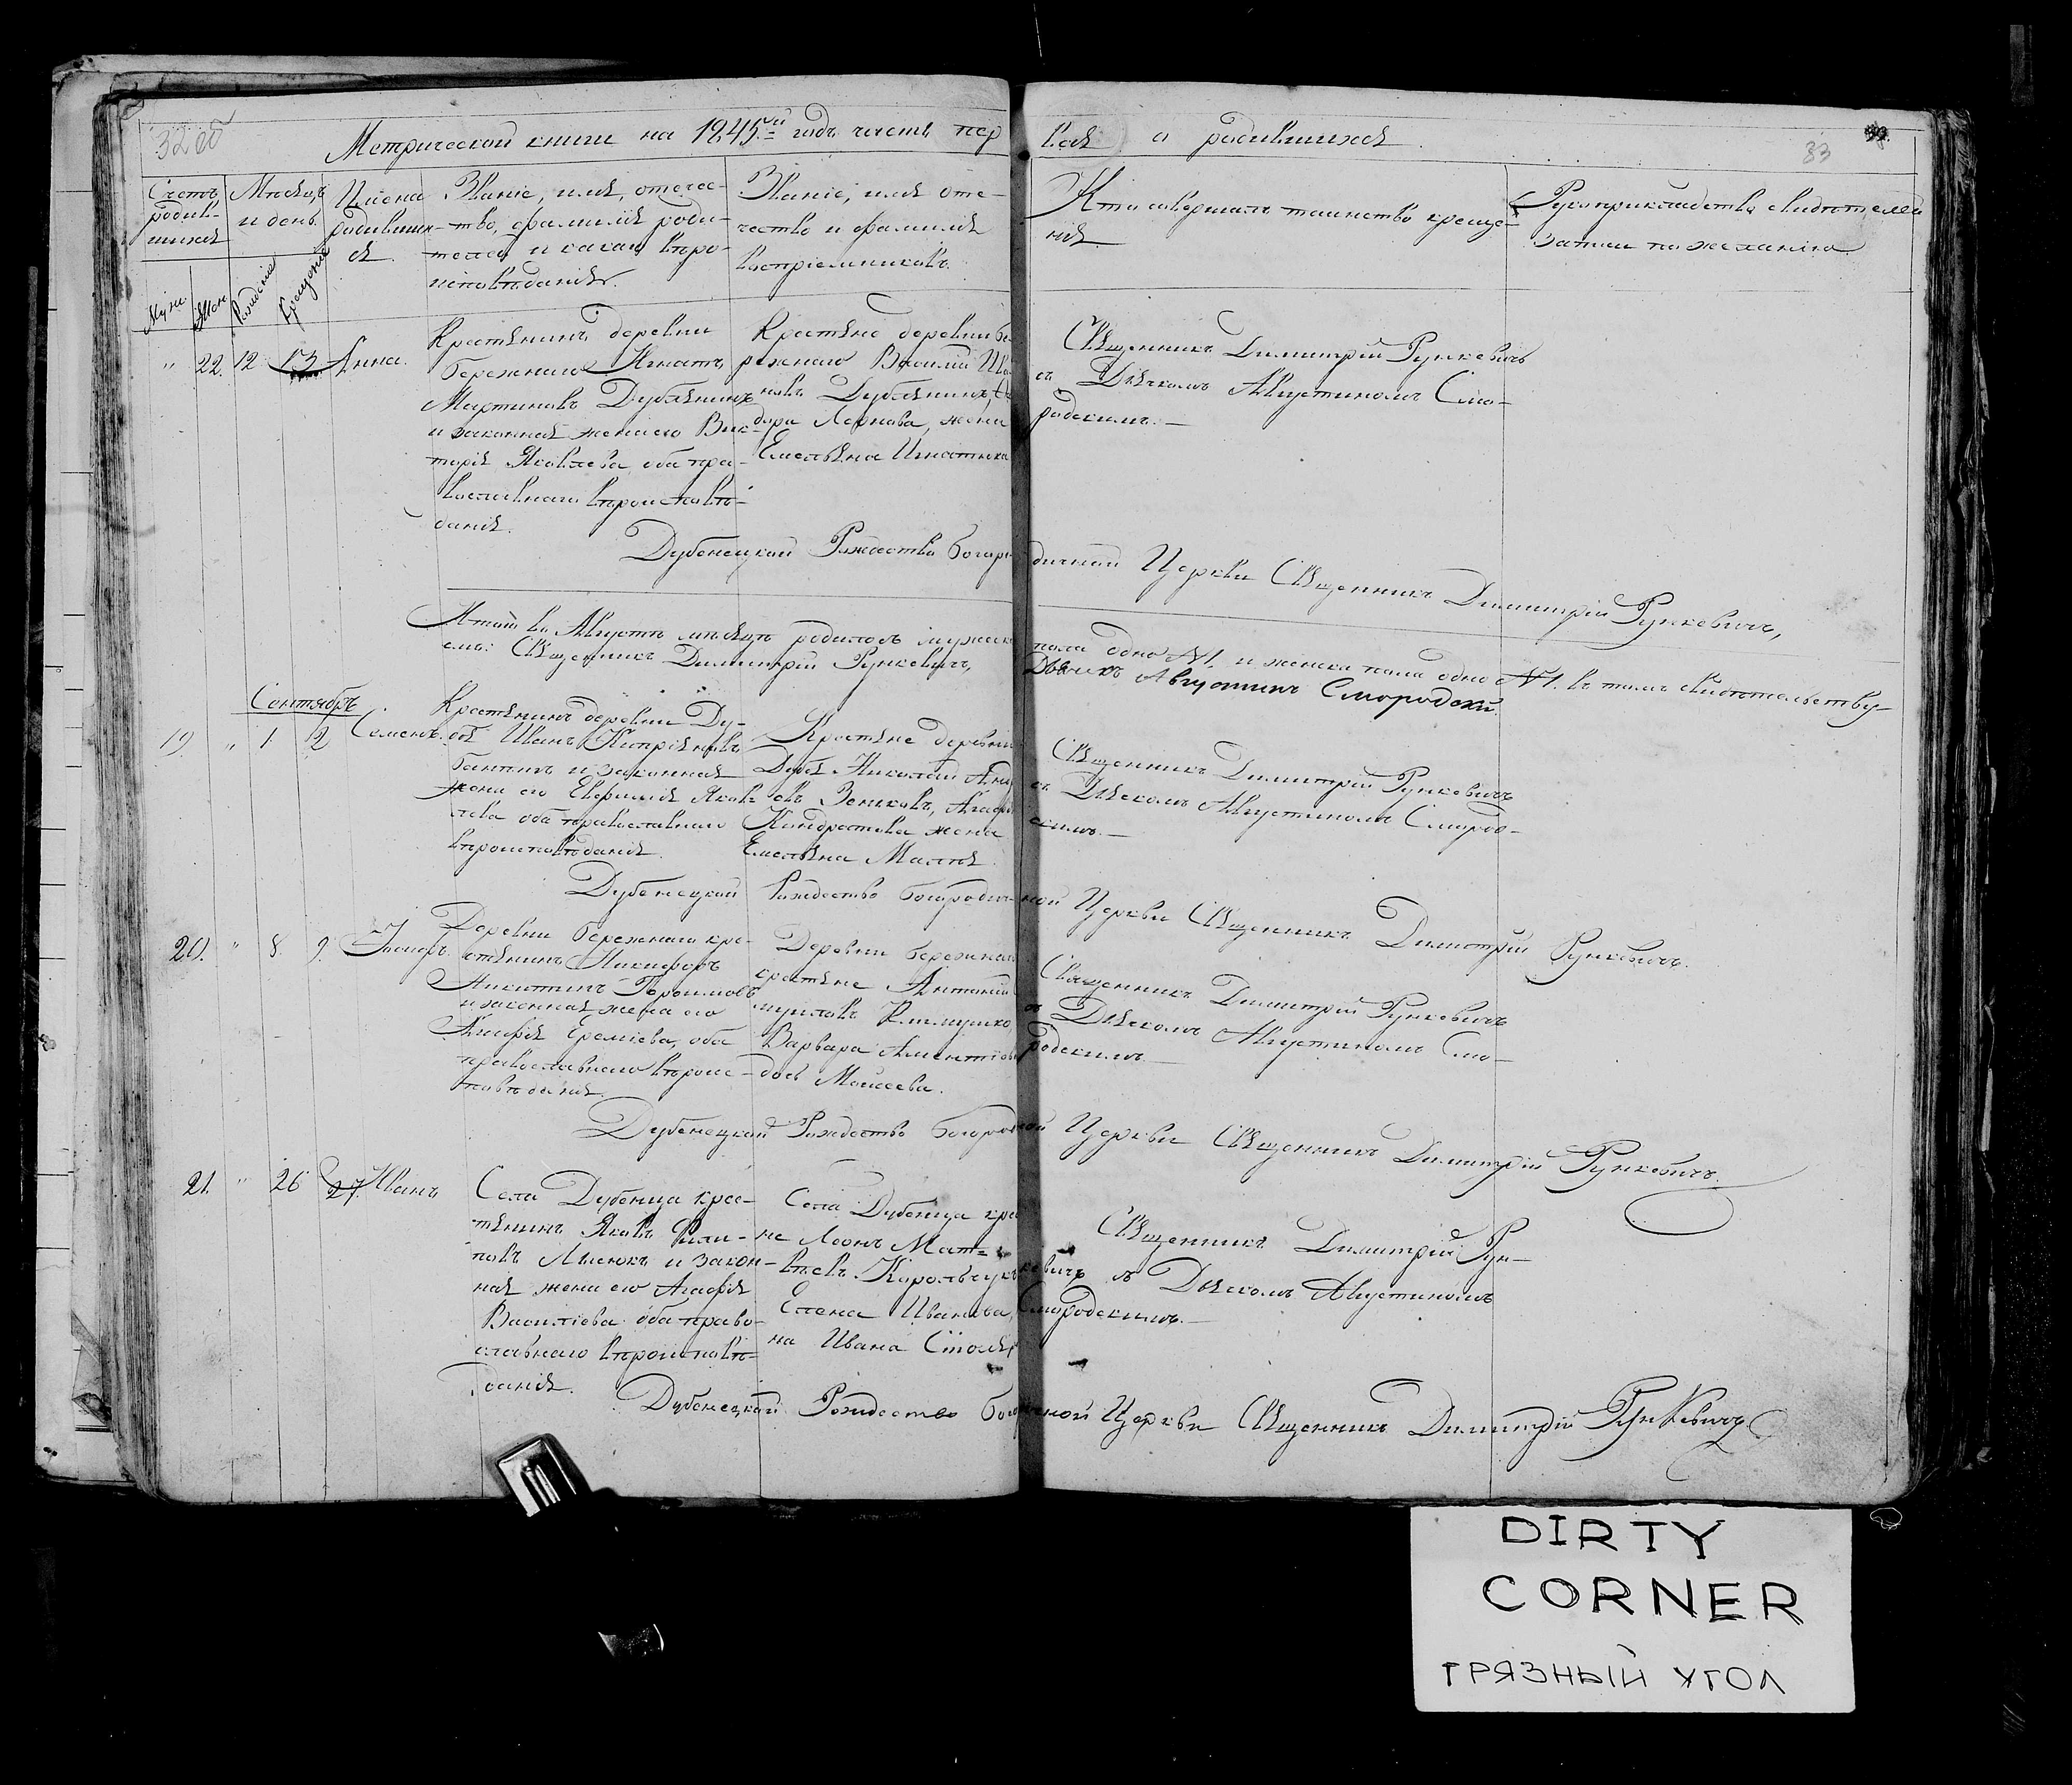 32 об
Метрической книги на 1845й годъ часть пер
вая о родившихся
33
Счетъ родив-
шихся
Мѣсяцъ
и день.
Имена
родивших-
ся.
Званіе, имя, отечес-
тво, фамилія роди-
телей и какого вѣро-
исповѣданія.
Званіе, имя оте-
чество и фамилія
воспріемниковъ.
Кто совершалъ таинство креще-
нія
Рукоприкладство свидѣтелей
записи по желанію
Муж.
Жен.
Рожденіе
Крещеніе
" 22. 12 13 Анна.
Крестьянинъ деревни
Бережнаго Игнатъ
Мартиновъ Дубянинъ
и законная жена его Вик-
торія Яковлева, оба пра-
вославнаго вѣроисповѣ-
данія.
Крестьяне деревни Бе
режнаго Василій Ива
новъ Дубянинъ,
Карпова, жена
Емельяна Игнатюка
Священникъ Димитрій Рункевичъ
съ Дьячкомъ Августиномъ Смо-
родскимъ.—
Дубенецкой Рождество Богоро
дичной Церкви Священникъ Димитрій Рункевичъ,
Итого въ Августѣ мѣсяцѣ родилось мужеск
пола одно №1. и женска пола одно №1. въ томъ свидѣтельству-
емъ: Священникъ Димитрій Рункевичъ,
Дьячекъ Августинъ Смородский.
Сентябрь
19 " 1. 2 Семенъ.
Крестьянинъ деревни Ду-
бя Иванъ Кипріяновъ
и законная
жена его Евфимія Яков-
лева оба православнаго
вѣроисповѣданія.
Крестьяне деревни
Дубя Николай
Зеньковъ,
Кондратова жена
Емельяна Малюя.
Священникъ Димитрій Рункевичъ
съ Дьячкомъ Августиномъ Смород-
скимъ.—
Дубенецкой Рождество Богородич
ной Церкви Священникъ Димитрій Рункевичъ.
20. " 8. 9.
Деревни Бережнаго кре-
стьянинъ Никифоръ
Никитинъ Герасимовъ
и законная жена его
Агафія Ереміева, оба
православнаго вѣроис-
повѣданія.
Деревни Бережнаго
крестьяне Антоній
Варвара
Моисеева.
Священникъ Димитрій Рункевичъ
съ Дьячкомъ Августиномъ Смо-
родскимъ.—
Дубенецкой Рождество Богород
ной Церкви Священникъ Димитрій Рункевичъ.
21. " 26 27. Иванъ
Села Дубенца крес-
тянинъ Яковъ Фили-
повъ Лисюкъ и закон-
ная жена его Агафія
Василіева оба право-
славнаго вѣроисповѣ-
данія.
Села Дубенца крес
не Леонъ Мат-
вѣевъ Корольчукъ
Елена Иванова,
на Ивана Столяр
Священникъ Димитрій Рун-
кевичъ съ Дьячкомъ Августиномъ
Смородскимъ.—
Дубенецкой Рождество Бого
ной Церкви Священникъ Димитрій Рункевичъ
DIRTY
CORNER
ГРЯЗНЫЙ УГОЛ